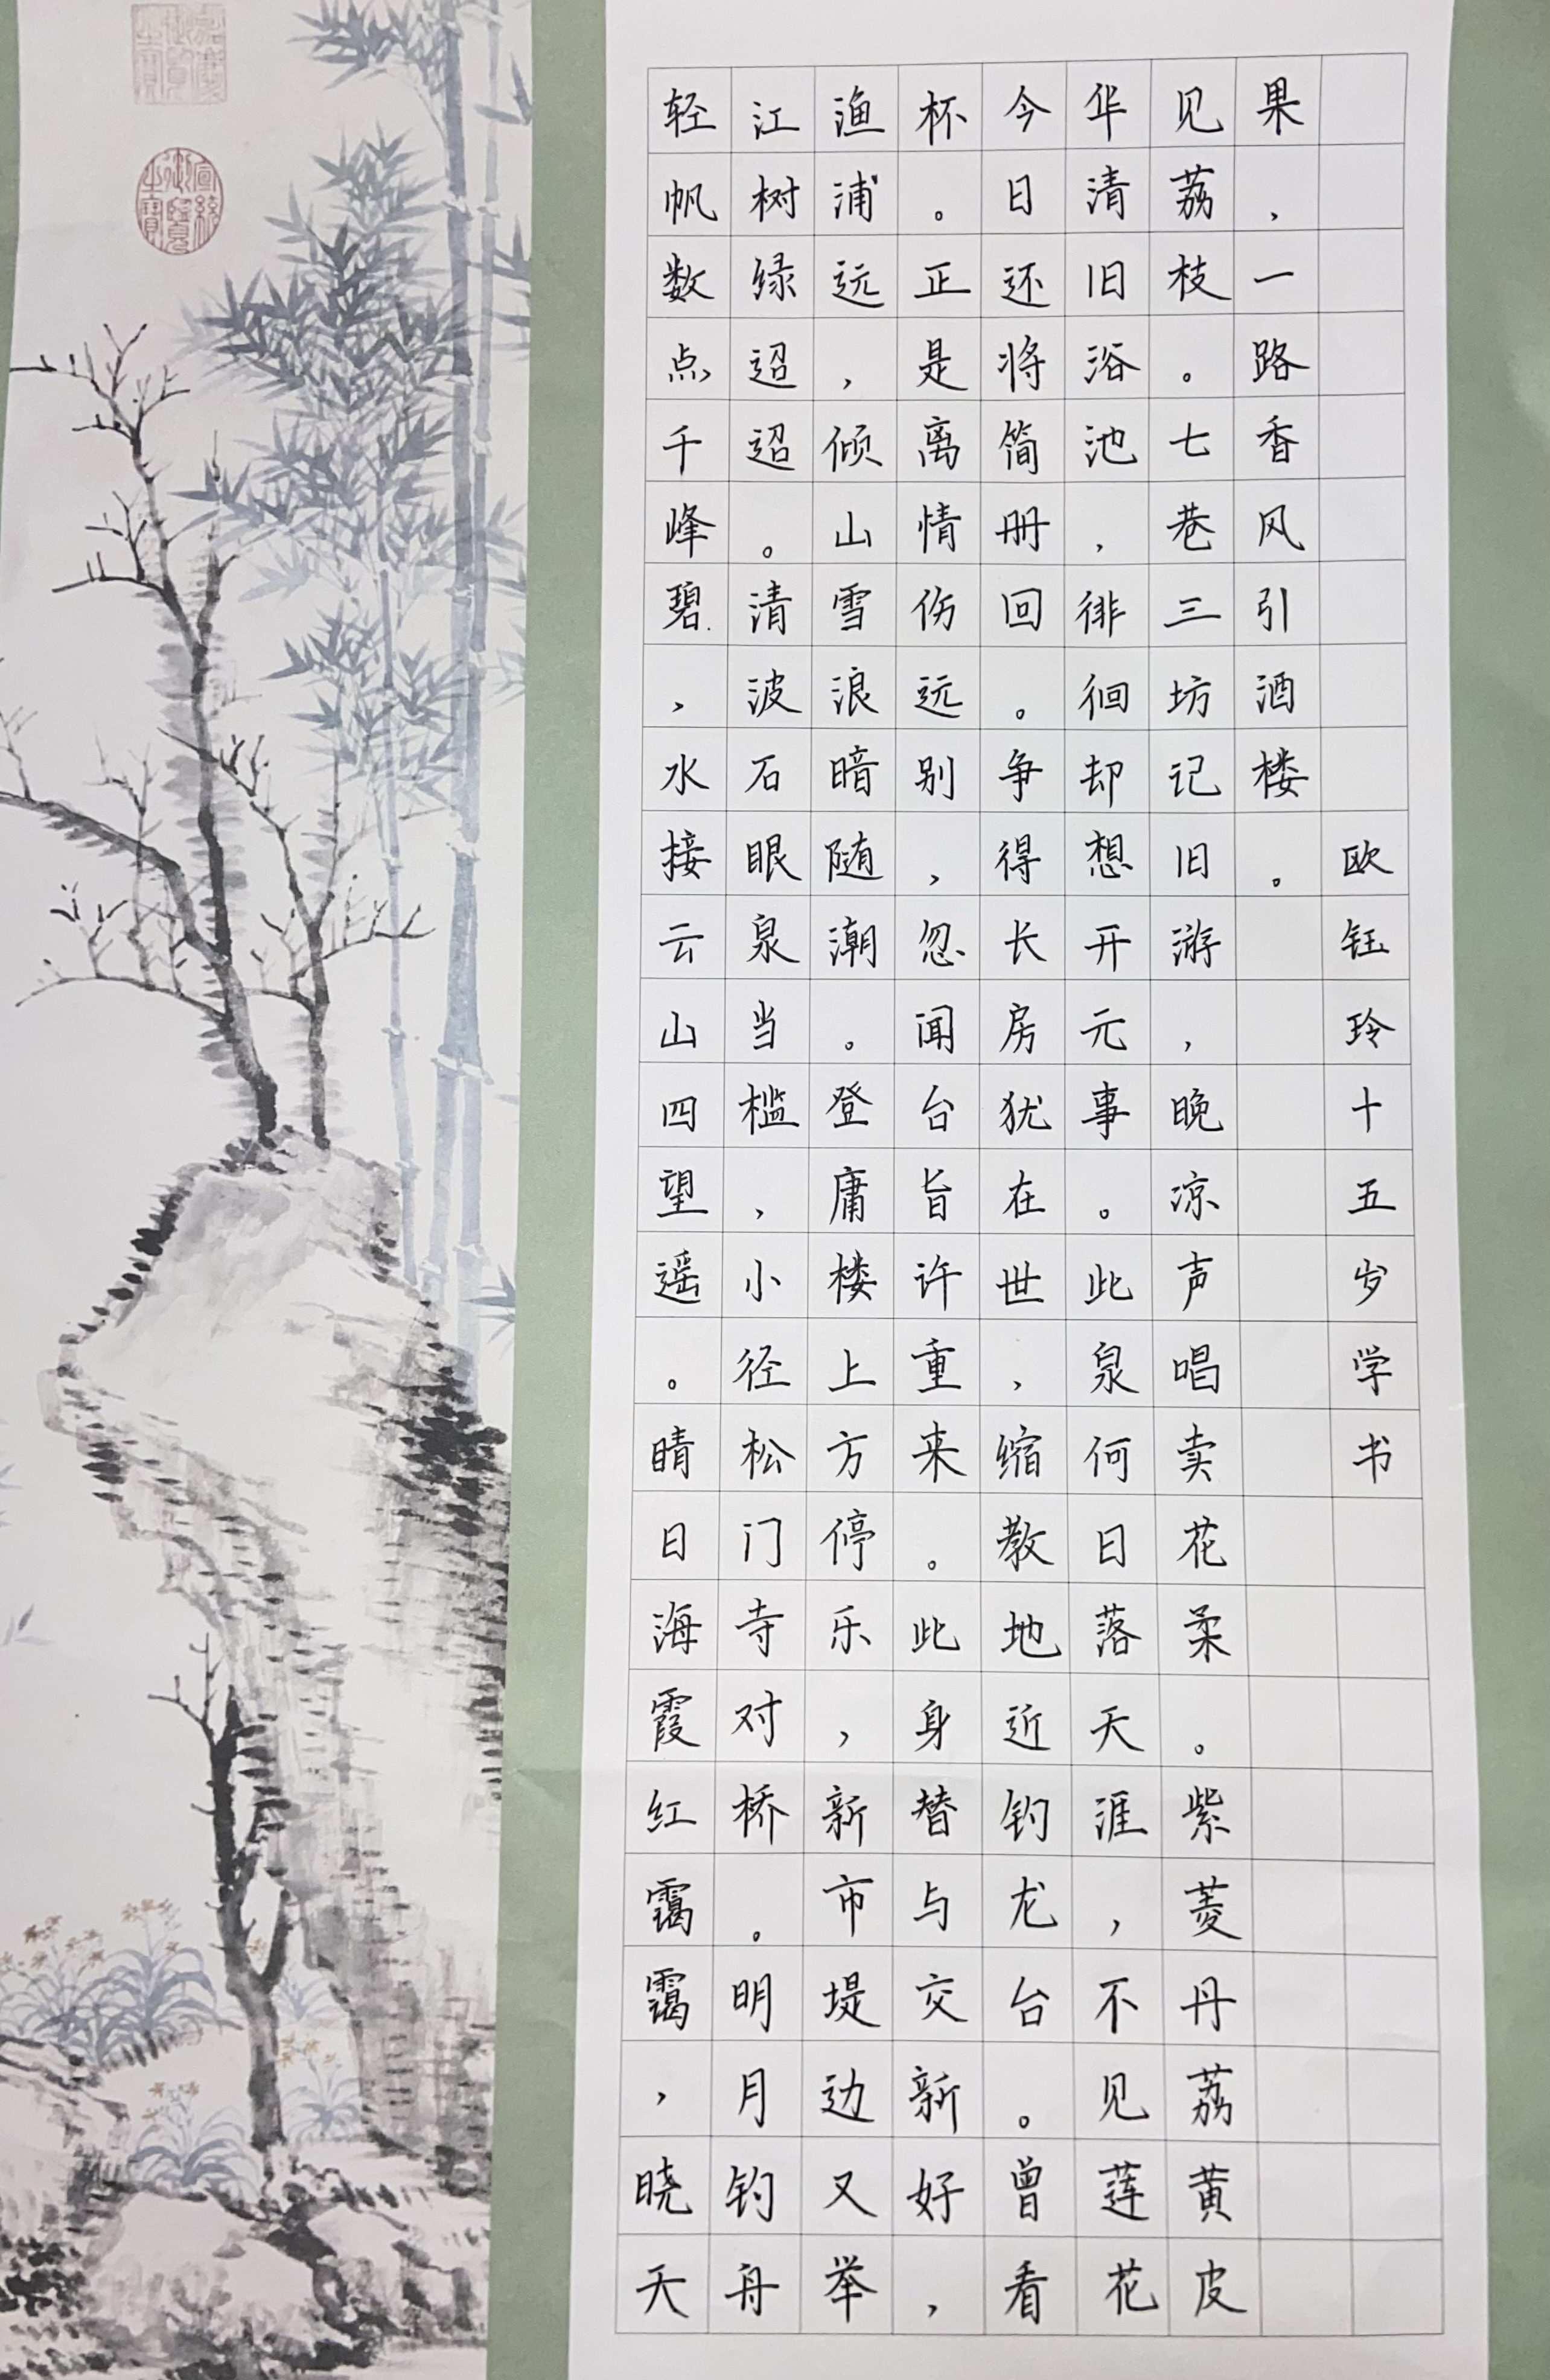 嘉慶御覽之寶
宣統御覽之寶
轻帆数点千峰碧，水接云山四望遥。晴日海霞红霭霭，晓天
江树绿迢迢。清波石眼泉当槛，小径松门寺对桥。明月钓舟
渔浦远，倾山雪浪暗随潮。登庸楼上方停乐，新市堤边又举
杯。正是离情伤远别，忽闻台旨许重来。此身替与交新好，
今日还将简册回。争得长房犹在世，缩教地近钓龙台。曾看
华清旧浴池，徘徊却想开元事。此泉何日落天涯，不见莲花
见荔枝。七巷三坊记旧游，晚凉声唱卖花柔。紫菱丹荔黄皮
果，一路香风引酒楼。
欧钰玲十五岁学书